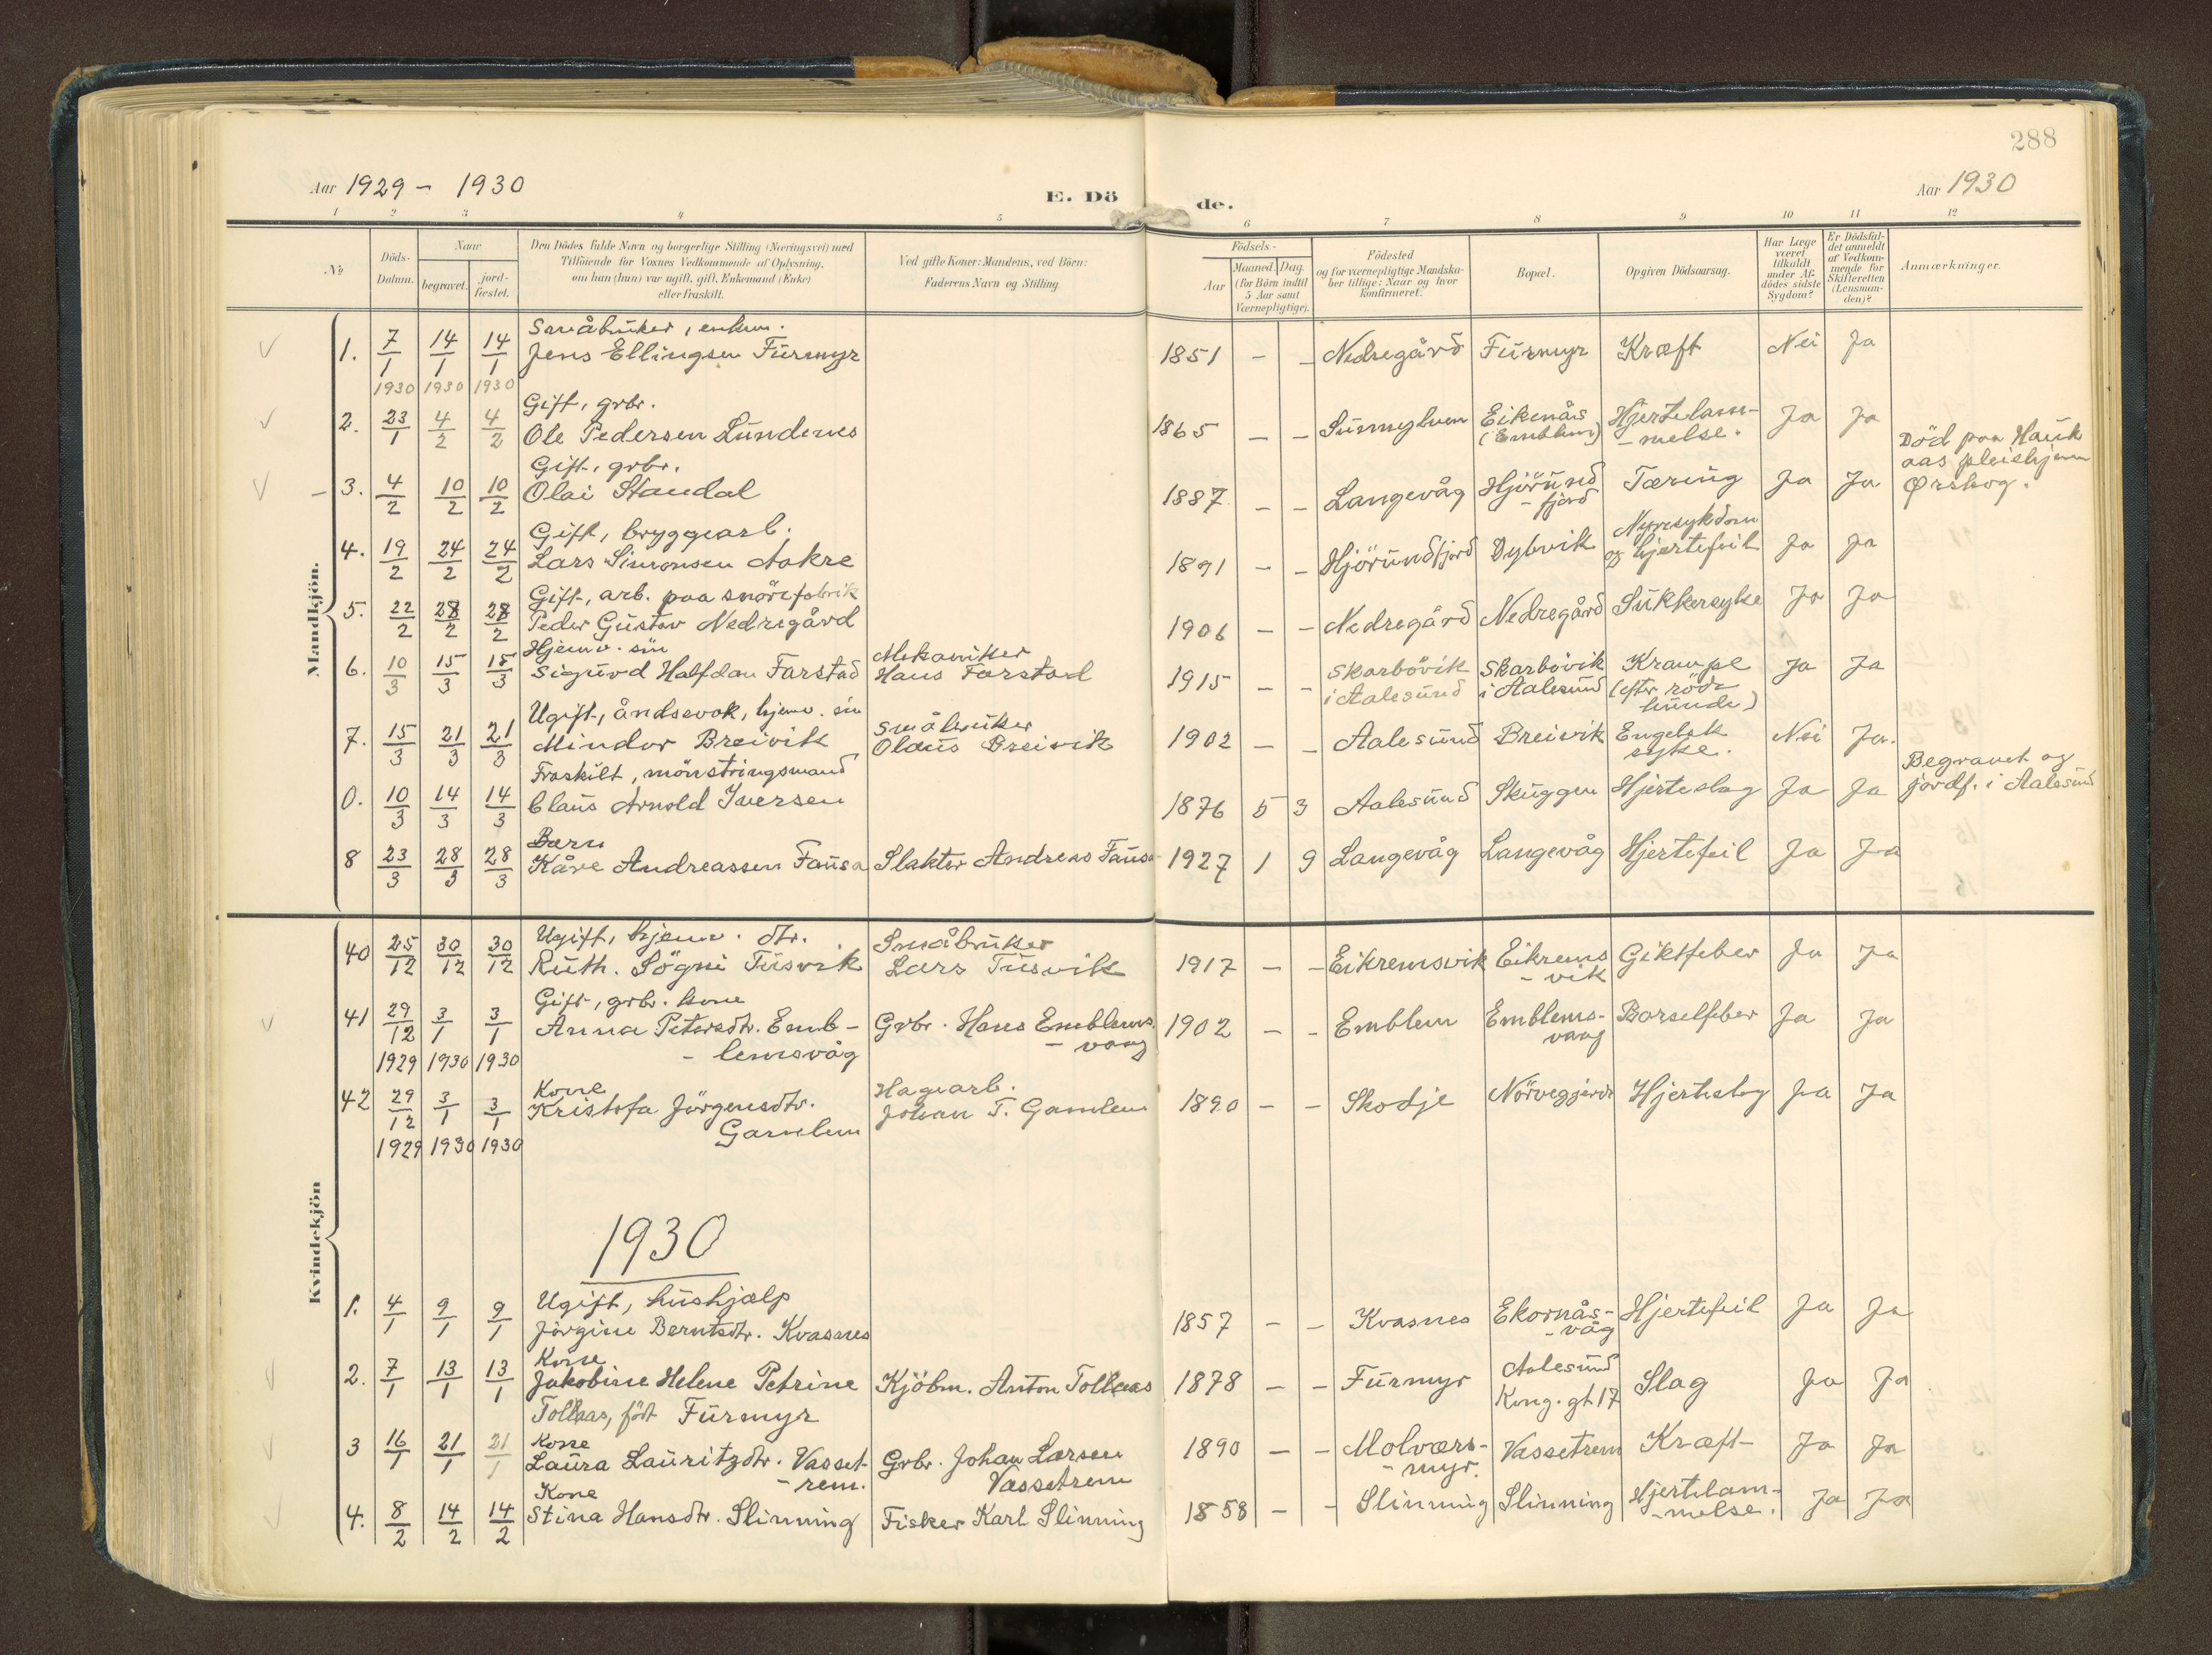 288
Aar 1929 - 1930
E. Dö
de.
Aar 1930
1 2 3 4 5 6 7 8 9 10 11 12
№
Döds-
Datum.
Naar
begravet.
jord-
fæstet.
Den Dödes fulde Navn og borgerlige Stilling (Næringsvei) med
Tilföiende for Voxnes Vedkommende af Oplysning,
om han (hun) var ugift, gift, Enkemand (Enke)
eller fraskilt.
Ved gifte Koner: Mandens, ved Börn:
Faderens Navn og Stilling.
Födsels-
Aar
Maaned. Dag.
(for Börn indtil
5 Aar samt
Værnepligtige).
Födested
og for værnepligtige Mandska-
ber tillige: Naar og hvor
konfirmeret.
Bopæl.
Opgiven Dödsaarsag.
Har Læge
været
tilkaldt
under Af-
dödes sidste
Sygdom?
Er Dödsfal-
det anmeldt
af Vedkom-
mende for
Skifteretten
(Lensman-
den)?
Anmærkninger.
Mandkjön.
Småbruker, enkem.
1. 7/1 14/1 14/1 Jens Ellingsen Furmyr 1851 - - Nedregård Furmyr Kræft Nei Ja
1930 1930 1930
Gift, grbr.
2. 23/1 4/2 4/2 Ole Pedersen Lundenes 1865 - - Sunnylven Eikenås Hjertelam- Ja Ja
(Emblem) -melse.
Gift, grbr.
3. 4/2 10/2 10/2 Olai Standal 1887 - - Langevåg Hjörund Tæring Ja Ja
-fjord
Död paa Hauk
aas pleiehjem
Ørskog.
Gift, bryggearb.
4. 19/2 24/2 24/2 Lars Simonsen Aakre 1891 - - Hjörundfjord Dybvik Nyresykdom Ja Ja
og hjertefeil
Gift, arb. paa snörefabrik
5. 22/2 28/2 28/2 Peder Gustav Nedregård 1906 - - Nedregård Nedregård Sukkersyke Ja Ja
Hjemv. sön Mekaniker
6. 10/3 15/3 15/3 Sigurd Halfdan Farstad Hans Farstad 1915 - - Skarbövik Skarbövik Krampe Ja Ja
i Aalesund i Aalesund (efter röde
hunde)
Ugift, åndsevak, hjemv. sön Småbruker
7. 15/3 21/3 21/3 Mindor Breivik Olaus Breivik 1902 - - Aalesund Breivik Engelsk Nei Ja.
syke.
Fraskilt, mönstringsmand
0. 10/3 14/3 14/3 Claus Arnold Iversen 1876 5 3 Aalesund Skuggen Hjerteslag Ja Ja
Begravet og
jordf. i Aalesund
Barn
8 23/3 28/3 28/3 Kåre Andreassen Fausa Slakter Andreas Fausa 1927 1 9 Langevåg Langevåg Hjertefeil Ja Ja
Kvindekjön
Ugift, hjemv. dtr. Småbruker
40 25/12 30/12 30/12 Ruth. Sögni Tusvik Lars Tusvik 1917 - - Eikremsvik Eikrems Giktfeber Ja Ja
-vik
Gift, grbr. kone
41 29/12 3/1 3/1 Anna Petersdtr. Emb- Grbr. Hans Emblems- 1902 - - Emblem Emblems- Barselfeber Ja Ja
1929 1930 1930 -lemsvåg -vaag vaag
Kone Hagearb.
42 29/12 3/1 3/1 Kristofa Jörgensdtr. Johan T. Gamlem 1890 - - Skodje Nörveggjerde Hjerteslag Ja Ja
Gamlem
1929 1930 1930
1930
Ugift, hushjælp
1. 4/1 9/1 9/1 Jörgine Berntsdtr. Kvasnes 1857 - - Kvasnes Ekornås- Hjertefeil Ja Ja
-våg
Kone
2. 7/1 13/1 13/1 Jakobine Helene Petrine Kjöbm. Anton Tollaas 1878 - - Furmyr Aalesund Slag Ja Ja
Tollaas, född Furmyr Kong. gt 17
Kone
3 16/1 21/1 21/1 Laura Lauritzdtr. Vasset- Grbr. Johan Larsen 1890 - - Molværs- Vassetrem Kræft Ja Ja
-rem. Vassetrem -myr.
Kone
4. 8/2 14/2 14/2 Stina Hansdtr. Slinning Fisker Karl Slinning 1858 - - Slinning Slinning Hjertelam- Ja Ja
-melse.